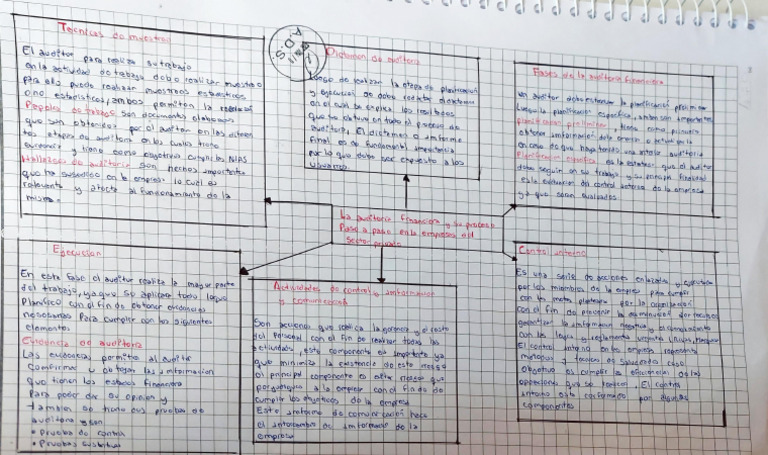 Tecnicas de muestreo
El auditor para realizar su trabajo
en la actividad de trabajo debe realizar muestreo
para ello puede realizar muestreos estadisticos
o no estadisticos, ambos permiten la
Papeles de trabajo son documentos elaborados
que son obtenidos por el auditor en las diferen
tes etapas de auditoria en las cuales
y tiene como objetivo cumplir las NIAS
Hallazgos de auditoria son hechos importantes
que ha sucedido en la empresa lo cual es
relevante y afecte al funcionamiento de la
misma.
Dictamen de auditoria
Luego de realizar la etapa de planificación
y ejecución se debe redactar dictamen
en el cual se explica los resultados
que se obtuvo en todo el proceso de
auditoria, El dictamen o informe
final es de fundamental importancia
por lo que debe ser expuesto a los
usuarios
Fases de la auditoria financiera
un auditor debe estancar la planificación preliminar
luego la planificación especifica, ambas son importantes
planificación preliminar: tiene como
obtener información de la empresa o actualizarla
en caso de que haya tenido una anterior auditoria
Planificación especifica es la estrategia que el auditor
debe seguir en su trabajo y su principal finalidad
es la evaluación del control interno de la empresa
y a que serán evaluados
La auditoria financiera y su proceso
Paso a paso en la empresas del
Sector privado
Ejecucion
En esta fase el auditor realiza la mayor parte
del trabajo, ya que se aplican todo lo que
Planifico con el fin de obtener evidencias
necesarias Para cumplir con los siguientes
elementos.
Evidencia de auditoria
Las evidencias permiten al auditor
Confirmar u obtener las información
que tienen los estados financiera
Para poder dar su opinion y
tambien se tiene sus pruebas de
auditoria y son
• Pruebas de control
• Pruebas sustantivas
Actividades de control, información
y comunicación
Son acciones que realiza la gerencia y el resto
del Personal con el fin de realizar todas las
actividades, este componente es importante ya
que minimiza la existencia de este riesgo
el principal componente es alto riesgo que
perjudique a la empresa con el fin de
cumplir los objetivos de la empresa
Este sistema de comunicación hace
el intercambio de información de la
empresa
Control interno
Es una serie de acciones enlazadas y ejecutada
por los miembros de la empresa para cumplir
con la meta planteada por la organización
con el fin de prevenir la disminución de recursos
garantizar la información negativa y el cumplimiento
con las leyes y reglamento vigente
El control interno en la empresa representa
metodos y tecnicas de
objetivo es cumplir la eficiencia de las
operaciones que se realizan. El control
interno esta conformado por algunas
componentes